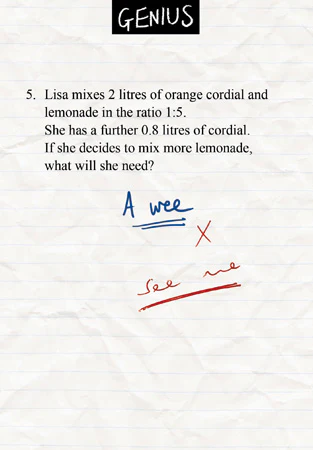 GENIUS
5. Lisa mixes 2 litres of orange cordial and
lemonade in the ratio 1:5.
She has a further 0.8 litres of cordial.
If she decides to mix more lemonade,
what will she need?
A wee
X
see me